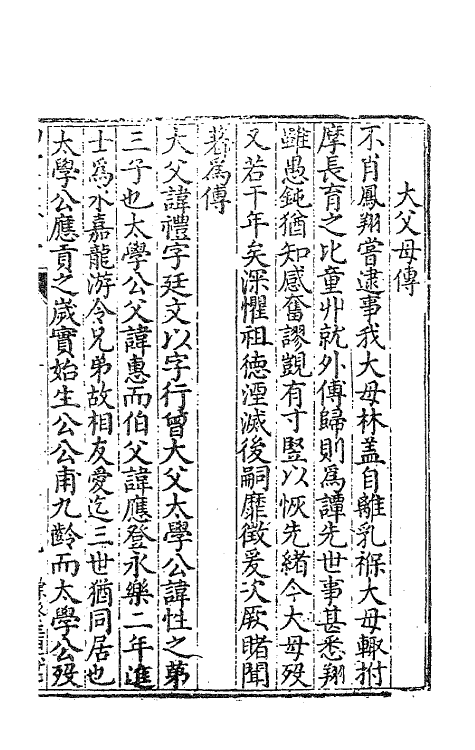 大父母傳
不肖鳳翔嘗逮事我大母林盖自離乳褓大母輙拊
摩長育之比童丱就外傅歸則爲譚先世事甚悉翔
雖愚鈍猶知感奮謬覬有寸豎以恢先緒今大母殁
又若干年矣深懼祖德湮滅後嗣靡徵爰次厥睹聞
著爲傳
大父諱禮字廷文以字行曾大父太學公諱性之第
三子也太學公父諱惠而伯父諱應登永樂二年進
士爲永嘉龍游令兄弟故相友愛迄三世猶同居也
太學公應貢之歲實始生公公甫九齡而太學公殁